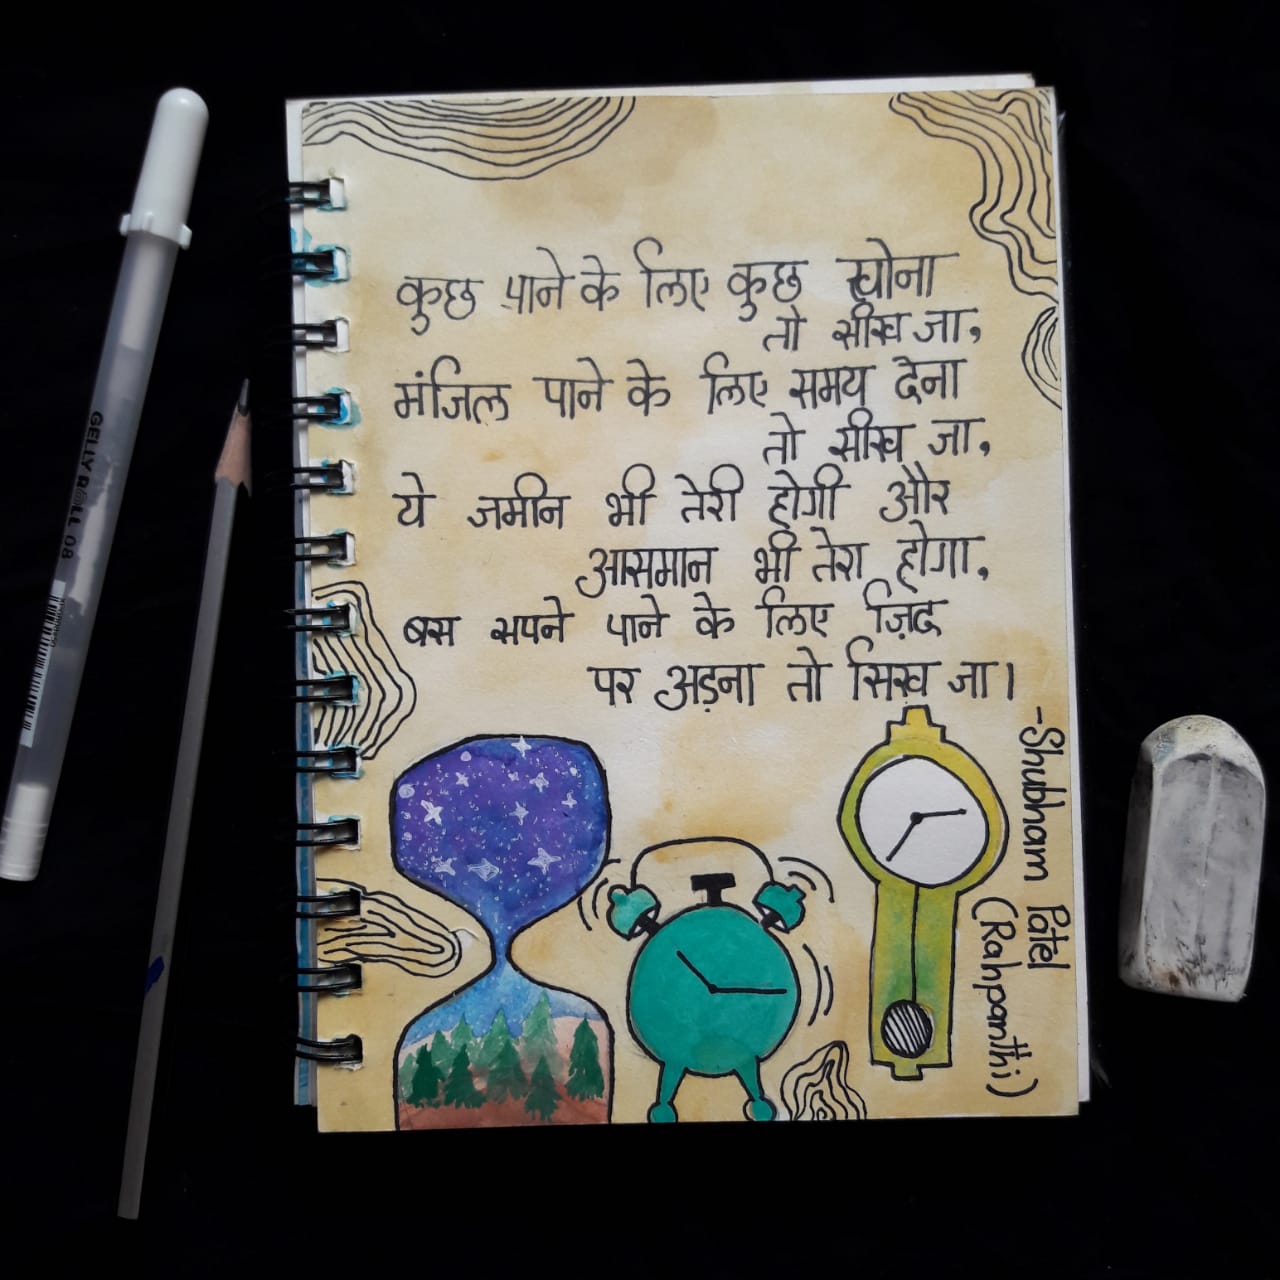 कुछ पाने के लिए कुछ खोना
तो सीख जा,
मंजिल पाने के लिए समय देना
तो सीख जा,
ये जमीन भी तेरी होगी और
आसमान भी तेरा होगा,
बस सपने पाने के लिए ज़िद
पर अड़ना तो सिख जा।
-Shubham Patel
(Rahpanthi)
GELLY ROLL 08